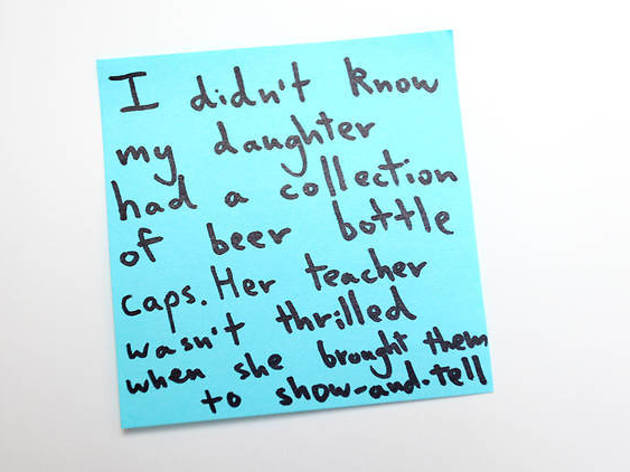 I didn't know
my daughter
had a collection
of beer bottle
caps. Her teacher
wasn't thrilled
when she brought them
to show-and-tell